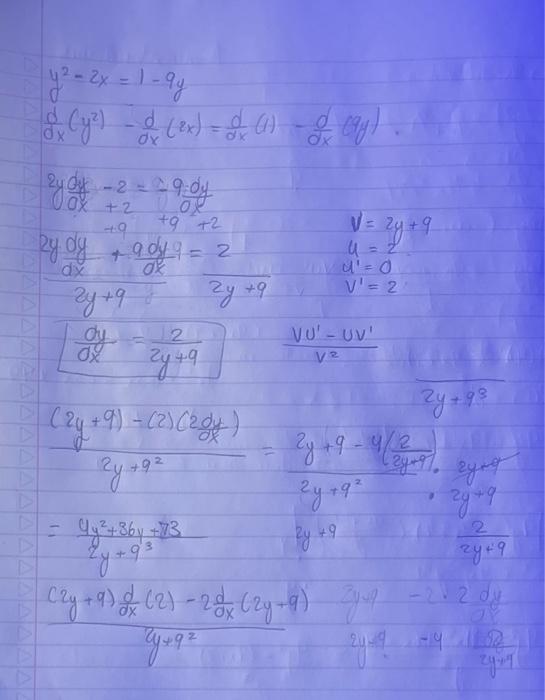 y² - 2x = 1 - 9y
d/dx (y²) - d/dx (2x) = d/dx (1) - d/dx (9y).
2y dy/dx - 2 = -9 dy/dx
+9 +2 +9 +2
2y dy/dx + 9 dy/dx 9 = 2
2y+9 2y+9
V = 2y+9
u = 2
u' = 0
V' = 2
dy/dx = 2/(2y+9)
VU' - UV'
V²
2y+9³
(2y+9) - (2)(2 dy/dx) = 2y+9 - 4(2/(2y+9)) · 2y+9
2y+9² 2y+9² · 2y+9
= 4y²+36y+73 2y+9 2
2y+9³ 2y+9
(2y+9) d/dx (2) - 2 d/dx (2y+9) 2y+9 -2·2 dy/dx
2y+9² 2y+9 -4
2y+9